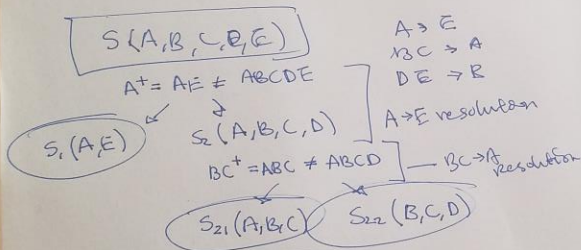 S(A,B,C,D,E)
A → E
BC → A
DE → B
A⁺ = AE ≠ ABCDE
S₁(A,E)
S₂(A,B,C,D)
A→E resolution
BC⁺ = ABC ≠ ABCD
BC→A
Resolution
S₂₁(A,B,C)
S₂₂(B,C,D)